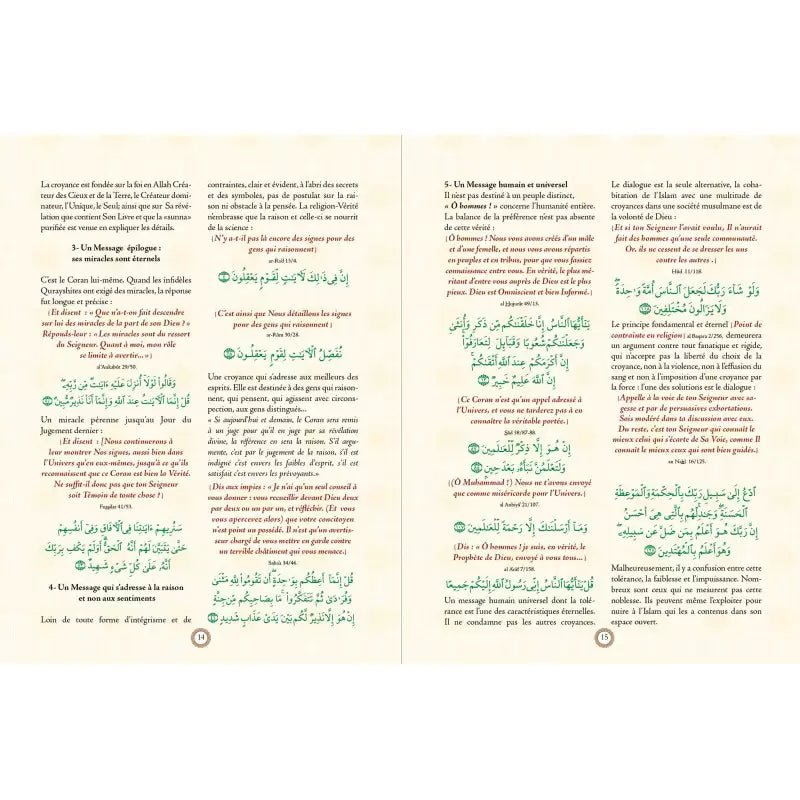 La croyance est fondée sur la foi en Allah Créa-
teur des Cieux et de la Terre, le Créateur domi-
nateur, l'Unique, le Seul; ainsi que sur Sa révé-
lation que contient Son Livre et que la «sunna»
purifiée est venue en expliquer les détails.
3- Un Message épilogue :
ses miracles sont éternels
C'est le Coran lui-même. Quand les infidèles
Qurayshites ont exigé des miracles, la réponse
fut longue et précise :
(Et disent : « Que n'a-t-on fait descendre
sur lui des miracles de la part de son Dieu ? »
Réponds-leur : « Les miracles sont du ressort
du Seigneur. Quant à moi, mon rôle
se limite à avertir... »)
al'Ankabût 29/50.
وَقَالُوا لَوْلَا أُنزِلَ عَلَيْهِ ءَايَٰتٌ مِّن رَّبِّهِۦ
قُلْ إِنَّمَا ٱلْءَايَٰتُ عِندَ ٱللَّهِ وَإِنَّمَآ أَنَا۠ نَذِيرٌ مُّبِينٌ
Un miracle pérenne jusqu'au Jour du
Jugement dernier :
(Et disent : [Nous continuerons à
leur montrer Nos signes, aussi bien dans
l'Univers qu'en eux-mêmes, jusqu'à ce qu'ils
reconnaissent que ce Coran est bien la Vérité.
Ne suffit-il donc pas que ton Seigneur
soit Témoin de toute chose ?)
Fuṣṣilat 41/53.
سَنُرِيهِمْ ءَايَٰتِنَا فِى ٱلْءَافَاقِ وَفِىٓ أَنفُسِهِمْ
حَتَّىٰ يَتَبَيَّنَ لَهُمْ أَنَّهُ ٱلْحَقُّ أَوَلَمْ يَكْفِ بِرَبِّكَ
أَنَّهُۥ عَلَىٰ كُلِّ شَىْءٍ شَهِيدٌ
4- Un Message qui s'adresse à la raison
et non aux sentiments
Loin de toute forme d'intégrisme et de
contraintes, clair et évident, à l'abri des secrets
et des symboles, pas de postulat sur la rai-
son ni obstacle à la pensée. La religion-Vérité
n'embrasse que la raison et celle-ci se nourrit
de la science :
(N'y a-t-il pas là encore des signes pour des
gens qui raisonnent)
ar-Ra'd 13/4.
إِنَّ فِى ذَٰلِكَ لَءَايَٰتٍ لِّقَوْمٍ يَعْقِلُونَ
(C'est ainsi que Nous détaillons les signes
pour des gens qui raisonnent)
ar-Rûm 30/28.
نُفَصِّلُ ٱلْءَايَٰتِ لِقَوْمٍ يَعْقِلُونَ
Une croyance qui s'adresse aux meilleurs des
esprits. Elle est destinée à des gens qui raison-
nent, qui pensent, qui agissent avec circons-
pection, aux gens distingués...
« Si aujourd'hui et demain, le Coran sera remis
à un juge pour qu'il en juge par sa révélation
divine, la référence en sera la raison. S'il argu-
mente, c'est par le jugement de la raison, s'il est
indigné c'est envers les faibles d'esprit, s'il est
satisfait c'est envers les prévoyants.»
(Dis aux impies : « Je n'ai qu'un seul conseil à
vous donner : vous recueillir devant Dieu deux
par deux ou un par un, et réfléchir. (Et vous
vous apercevrez alors) que votre concitoyen
n'est point un possédé. Il n'est qu'un avertis-
seur chargé de vous mettre en garde contre
un terrible châtiment qui vous menace.)
Sabâ 34/46.
قُلْ إِنَّمَآ أَعِظُكُم بِوَٰحِدَةٍ أَن تَقُومُوا لِلَّهِ مَثْنَىٰ
وَفُرَٰدَىٰ ثُمَّ تَتَفَكَّرُوا مَا بِصَاحِبِكُم مِّن جِنَّةٍ
إِنْ هُوَ إِلَّا نَذِيرٌ لَّكُم بَيْنَ يَدَىْ عَذَابٍ شَدِيدٍ
14
5- Un Message humain et universel
Il n'est pas destiné à un peuple distinct,
« Ô hommes ! » concerne l'humanité entière.
La balance de la préférence n'est pas absente
de cette vérité :
(Ô hommes ! Nous vous avons créés d'un mâle
et d'une femelle, et nous vous avons répartis
en peuples et en tribus, pour que vous fassiez
connaissance entre vous. En vérité, le plus mé-
ritant d'entre vous auprès de Dieu est le plus
pieux. Dieu est Omniscient et bien Informé.)
al Ḥujurât 49/13.
يَٰٓأَيُّهَا ٱلنَّاسُ إِنَّا خَلَقْنَٰكُم مِّن ذَكَرٍ وَأُنثَىٰ
وَجَعَلْنَٰكُمْ شُعُوبًا وَقَبَآئِلَ لِتَعَارَفُوٓا
إِنَّ أَكْرَمَكُمْ عِندَ ٱللَّهِ أَتْقَىٰكُمْ
إِنَّ ٱللَّهَ عَلِيمٌ خَبِيرٌ
(Ce Coran n'est qu'un appel adressé à
l'Univers, et vous ne tarderez pas à en
connaître la véritable portée.)
Ṣâd 38/87-88.
إِنْ هُوَ إِلَّا ذِكْرٌ لِّلْعَٰلَمِينَ
وَلَتَعْلَمُنَّ نَبَأَهُۥ بَعْدَ حِينٍ
(Ô Muhammad !) Nous ne t'avons envoyé
que comme miséricorde pour l'Univers.)
al Anbiyâ' 21/107.
وَمَآ أَرْسَلْنَٰكَ إِلَّا رَحْمَةً لِّلْعَٰلَمِينَ
(Dis : « Ô hommes ! je suis, en vérité, le
Prophète de Dieu, envoyé à vous tous...)
al A'râf 7/158.
قُلْ يَٰٓأَيُّهَا ٱلنَّاسُ إِنِّى رَسُولُ ٱللَّهِ إِلَيْكُمْ جَمِيعًا
Un message humain universel dont la tolé-
rance est l'une des caractéristiques éternelles.
Il ne condamne pas les autres croyances.
Le dialogue est la seule alternative, la coha-
bitation de l'Islam avec une multitude de
croyances dans une société musulmane est de
la volonté de Dieu :
(Et si ton Seigneur l'avait voulu, Il n'aurait
fait des hommes qu'une seule communauté.
Or, ils ne cessent de se dresser les uns
contre les autres .)
Hûd 11/118.
وَلَوْ شَآءَ رَبُّكَ لَجَعَلَ ٱلنَّاسَ أُمَّةً وَٰحِدَةً
وَلَا يَزَالُونَ مُخْتَلِفِينَ
Le principe fondamental et éternel (Point de
contrainte en religion) al Baqara 2/256, demeurera
un argument contre tout fanatique et rigide,
qui n'accepte pas la liberté du choix de la
croyance, non à la violence, non à l'effusion du
sang et non à l'imposition d'une croyance par
la force : l'une des solutions est le dialogue :
(Appelle à la voie de ton Seigneur avec sa-
gesse et par de persuasives exhortations.
Sois modéré dans ta discussion avec eux.
Du reste, c'est ton Seigneur qui connaît le
mieux celui qui s'écarte de Sa Voie, comme Il
connaît le mieux ceux qui sont bien guidés.)
an Naḥl 16/125.
ٱدْعُ إِلَىٰ سَبِيلِ رَبِّكَ بِٱلْحِكْمَةِ وَٱلْمَوْعِظَةِ
ٱلْحَسَنَةِ وَجَٰدِلْهُم بِٱلَّتِى هِىَ أَحْسَنُ
إِنَّ رَبَّكَ هُوَ أَعْلَمُ بِمَن ضَلَّ عَن سَبِيلِهِۦ
وَهُوَ أَعْلَمُ بِٱلْمُهْتَدِينَ
Malheureusement, il y a confusion entre cette
tolérance, la faiblesse et l'impuissance. Nom-
breux sont ceux qui ne mesurent pas cette
noblesse. Ils peuvent même l'exploiter pour
nuire à l'Islam qui les a contenus dans son
espace ouvert.
15